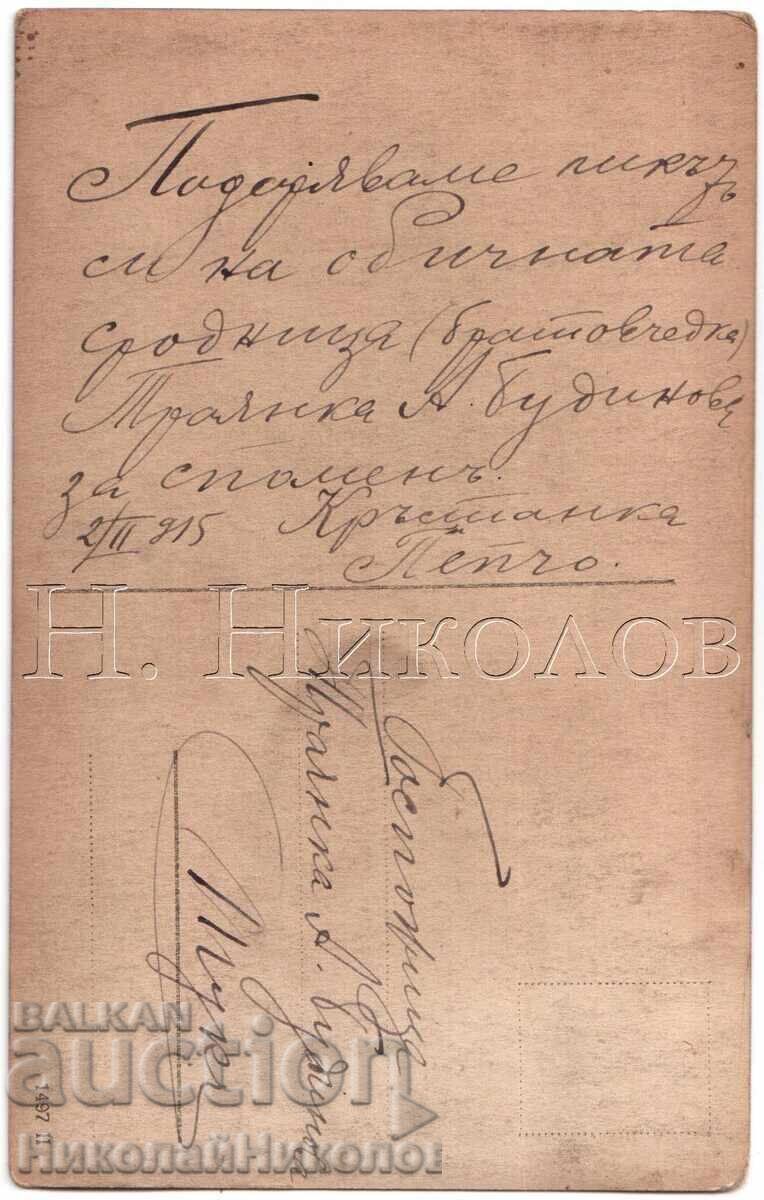 Подаряваме ликътъ
си на обичната
сродница (братовчедка)
Траянка А. Будинова
за споменъ.
2/II 915 Кръстанка
Пепчо.
Н. Николов
Госпожица
Траянка А. Будинова
Тукъ
1497 II
BALKAN
auction
НиколайНиколов